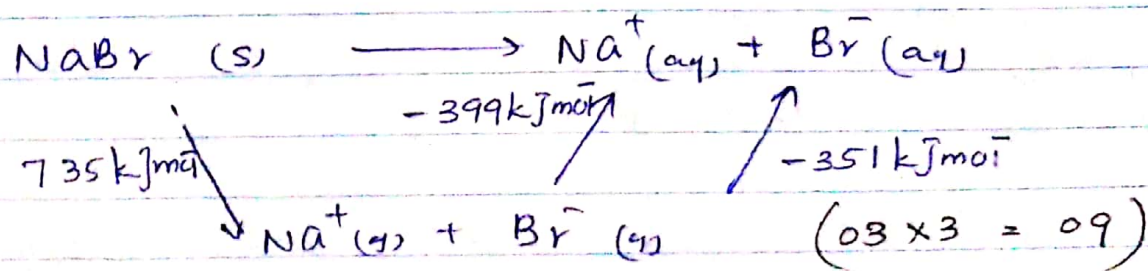 NaBr (s) ⟶ Na⁺(aq) + Br⁻(aq)
-399kJmol⁻
735kJmol⁻ -351kJmol⁻
Na⁺(g) + Br⁻(g) (03 × 3 = 09)